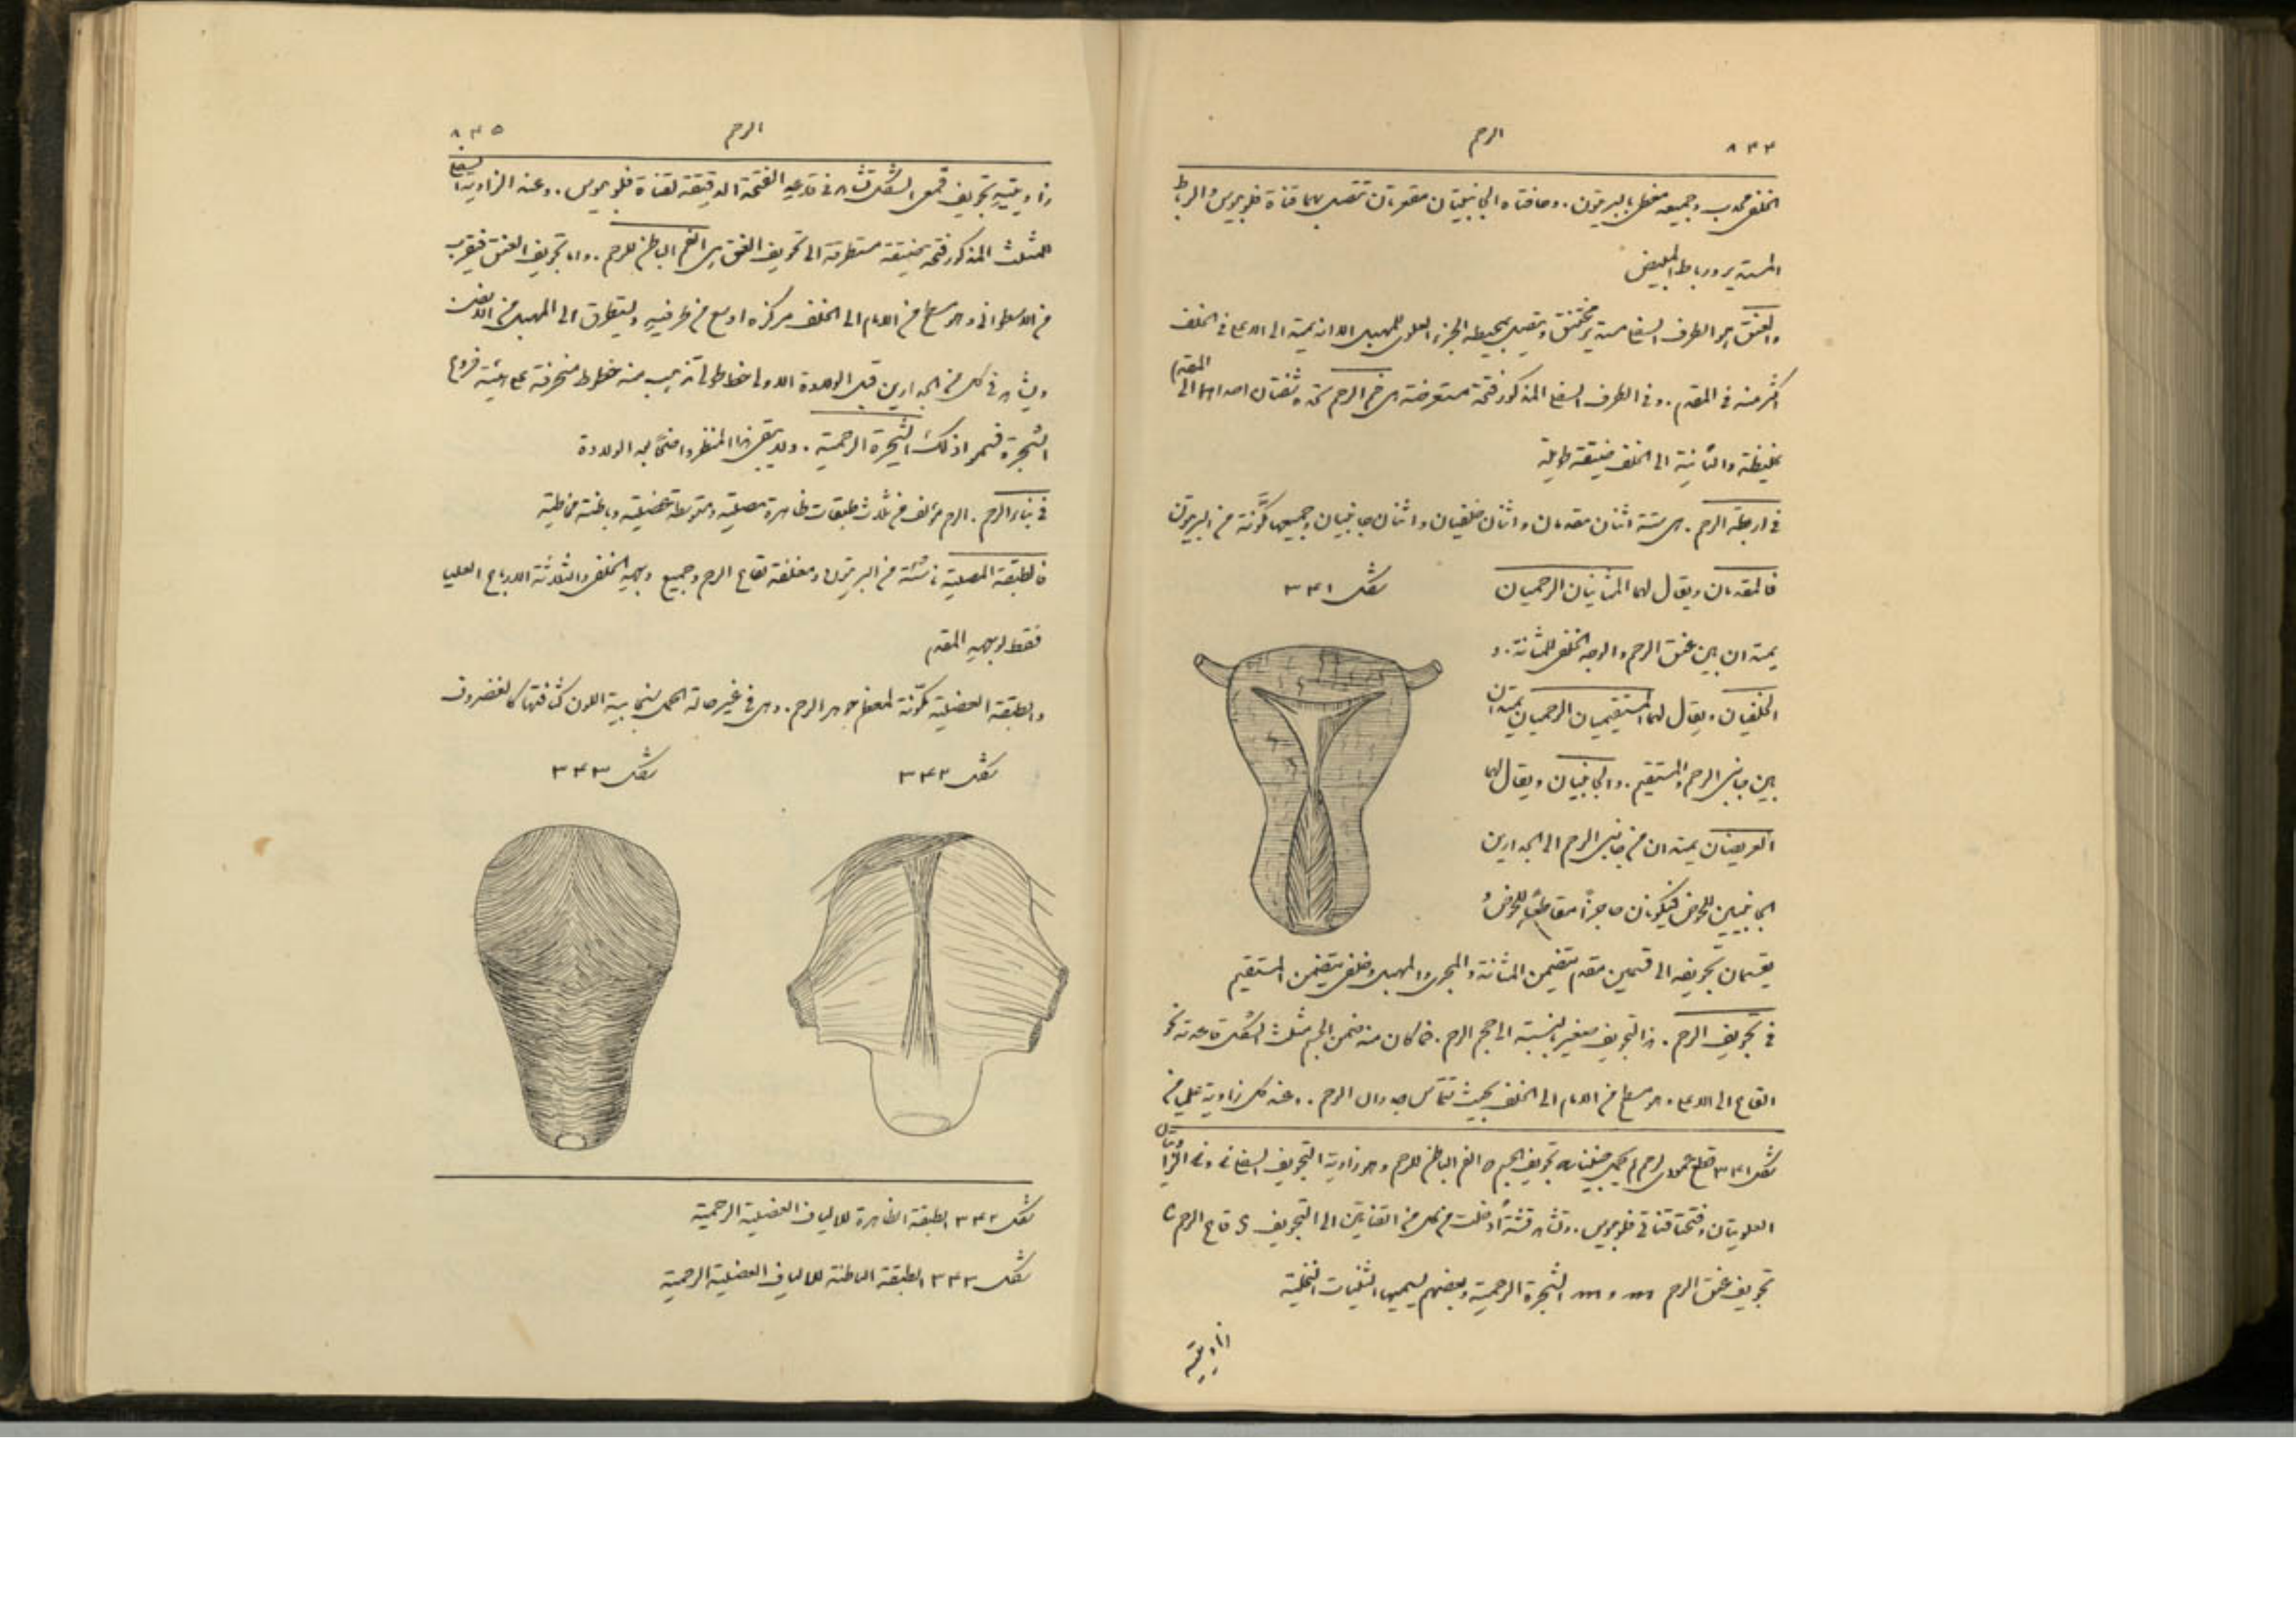 ٨٤٤
الرحم
الخلفي محدب وجميعه مغطى بالبريتون. وحافتاه الجانبيتان مقعرتان تتصل بهما قناة فلوبيوس والرباط
المستدير ورباط المبيض
والعنق هو الطرف السفلي مستدير مختنق ويتصل بمحيطه الجزء العلوي للمهبل الا انه يمتد الى الاعلى في الخلف
اكثر منه في المقدم. وفي الطرف السفلي المذكور فتحة مستعرضة هي فم الرحم تحده شفتان احداهما الى المقدم
غليظة والثانية الى الخلف ضيقة طويلة
في اربطة الرحم. هي ستة اثنان مقدمان واثنان خلفيان واثنان جانبيان وجميعها مكوَّنة من البريتون
فالمقدمان ويقال لهما المثانيان الرحميان
شكل ٣٤١
يمتدان بين عنق الرحم والوجه الخلفي للمثانة. و
الخلفيان ويقال لهما المستقيميان الرحميان يمتدان
بين جانبي الرحم والمستقيم. والجانبيان ويقال لهما
العريضان يمتدان من جانبي الرحم الى الجدارين
الجانبيين للحوض فيكونان حاجزًا مقاطعًا للحوض و
يقسمان تجويفه الى قسمين مقدم يتضمن المثانة والمجرى والمهبل وخلفي يتضمن المستقيم
في تجويف الرحم. هذا التجويف صغير بالنسبة الى حجم الرحم. فما كان منه ضمن الجسم مثلث الشكل قاعدته نحو
القاع الى الاعلى وهو مسطح من الامام الى الخلف بحيث تتماس جدران الرحم. وعند كل زاوية عليا من
شكل ٣٤١ قطع عمودي لرحم لم يحمل تجويف الجسم o الفم الباطن للرحم وهو زاوية التجويف السفلى وفي الزاويتان
العلويتان فتحتا قناتي فلوبيوس. وتشاهد قشة أُدخلت من كل من القناتين الى التجويف s قاع الرحم c
تجويف عنق الرحم m و m الشجرة الرحمية وبعضهم يسميها الثنيات النخلية
زاويتيه
٨٤٥
الرحم
زاويتيه تجويف قمعي الشكل تشاهد في قاعه الفتحة الدقيقة لقناة فلوبيوس. وعند الزاوية السفلى
للمثلث المذكور فتحة ضيقة متطرقة الى تجويف العنق هي الفم الباطن للرحم. واما تجويف العنق فيقرب
من الاسطواني وهو مسطح من الامام الى الخلف مركزه اوسع من طرفيه ويتطرق الى المهبل من الاسفل
ويشاهد في كل من الجدارين قبل الولادة الاولى خط طولاني يذهب منه خطوط منحرفة على هيئة فروع
الشجرة فسموا ذلك الشجرة الرحمية. ولا يبقى هذا المنظر واضحًا بعد الولادة
في بناء الرحم. الرحم مؤلف من ثلاث طبقات ظاهرة مصلية ومتوسطة عضلية وباطنة مخاطية
فالطبقة المصلية ناشئة من البريتون ومغلفة لقاع الرحم وجميع وجهه الخلفي والثلاثة الارباع العليا
فقط لوجهه المقدم
والطبقة العضلية مكوّنة لمعظم جوهر الرحم. وهي في غير حالة الحمل سنجابية اللون كثافتها كالغضروف
شكل ٣٤٢
شكل ٣٤٣
شكل ٣٤٢ الطبقة الظاهرة للالياف العضلية الرحمية
شكل ٣٤٣ الطبقة الباطنة للالياف العضلية الرحمية